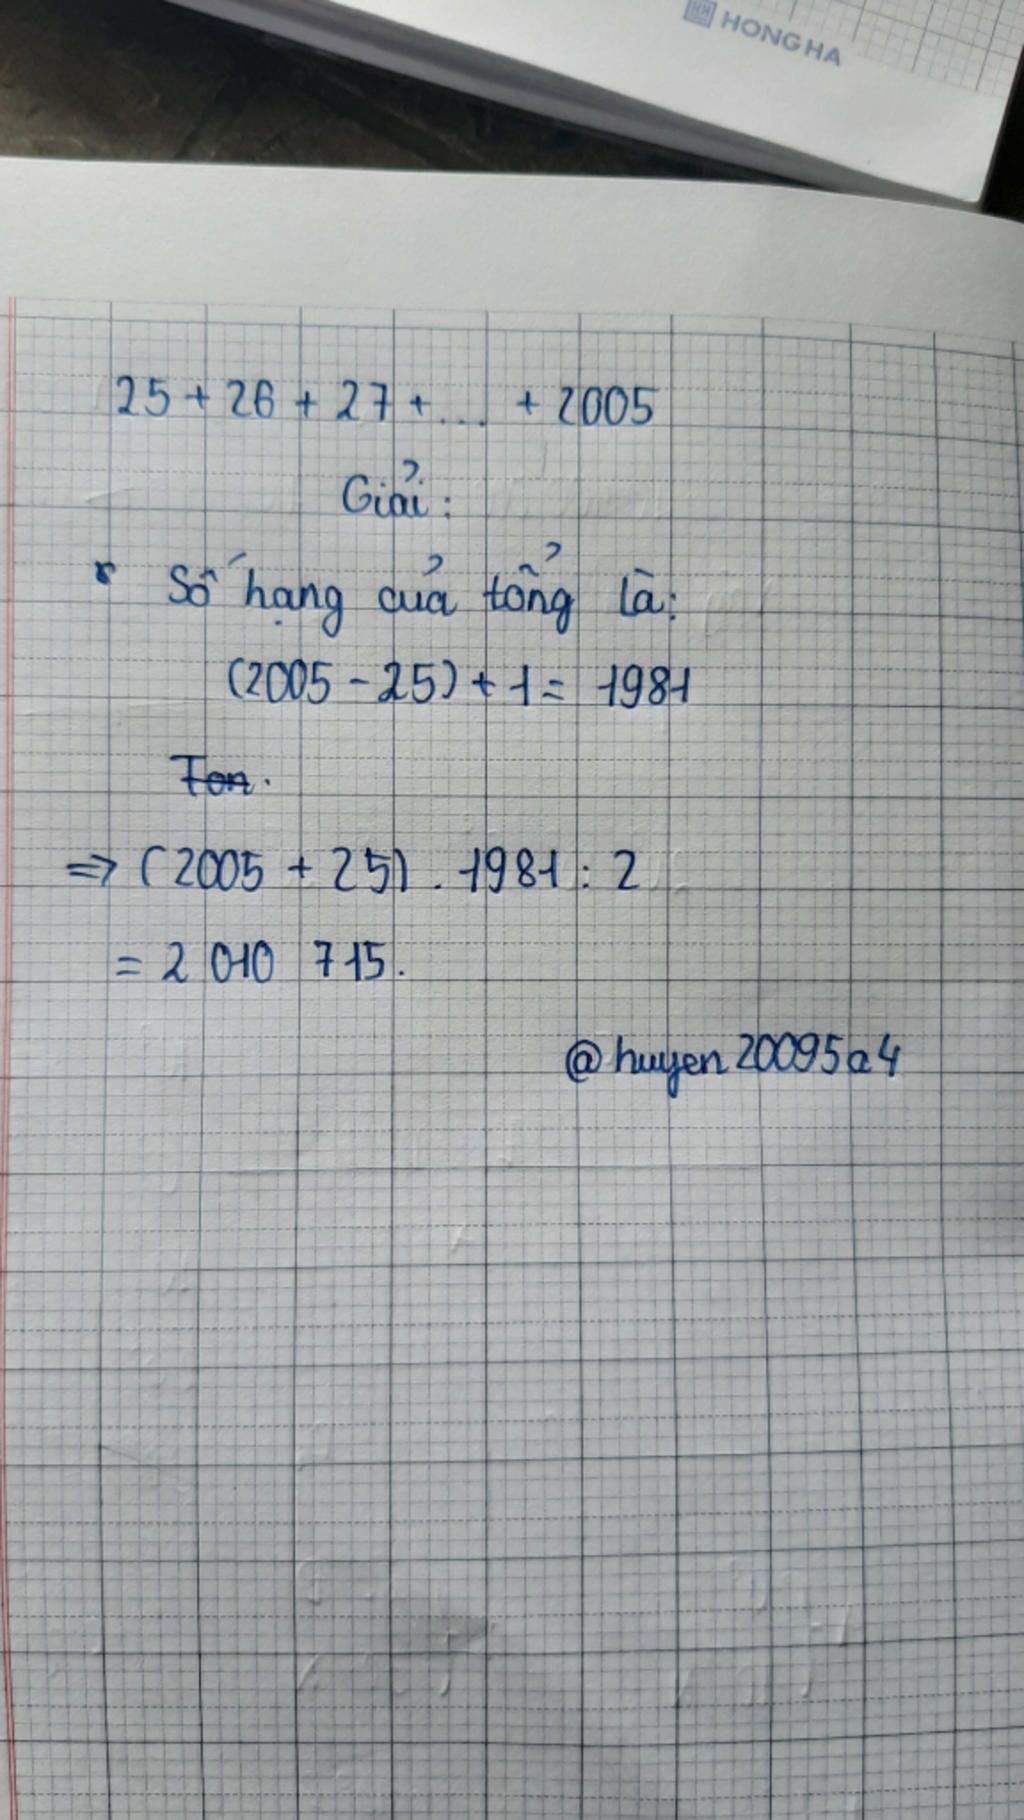 HONG HA
25 + 26 + 27 + ... + 2005
Giải:
Số hạng của tổng là:
(2005 - 25) + 1 = 1981
Ton.
=> (2005 + 25) . 1981 : 2
= 2 010 715.
@huyen20095a4